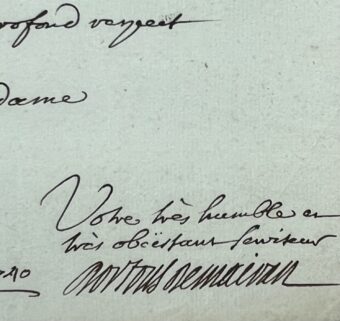 rofond respect
dame
Votre très humble et
très obëissant serviteur
Dortous de mairan